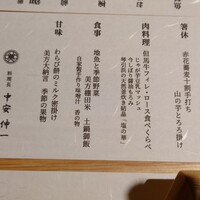 箸休
赤花蕎麦十割手打ち
山の芋とろろ掛け
肉料理
但馬牛フィレ・ロース食べくらべ
じゃが芋豆乳マッシュ
今しぼり醤油もろみ
岬召汲の天然釜炊き結晶「塩の華」
食事
地魚と季節野菜
美方棚田米 土鍋御飯
自家製手作り味噌汁 香の物
甘味
わらび餅のミルク蜜掛け
美方大納言 季節の果物
料理長
中安伸一